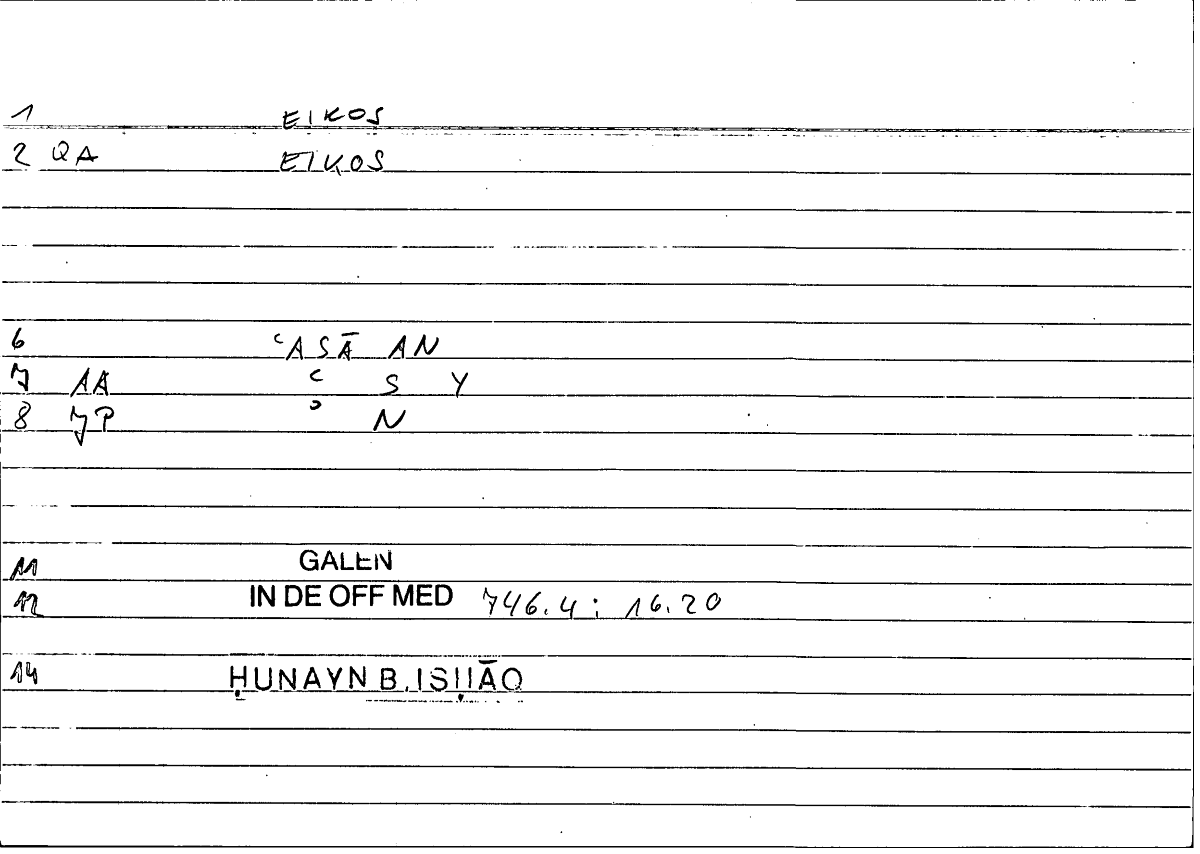 1 EIKOS
2 QA EIKOS
6 ʿASĀ AN
7 AA ʿ S Y
8 JP ʾ N
11 GALEN
12 IN DE OFF MED 746.4 : 16.20
14 ḤUNAYN B. ISḤĀQ